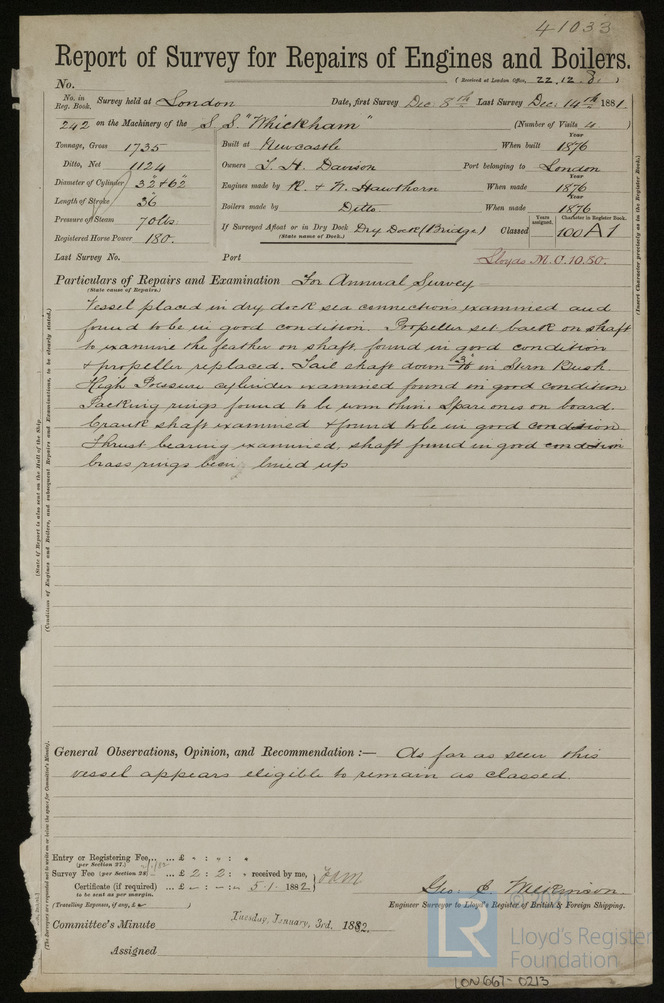 41033
Report of Survey for Repairs of Engines and Boilers.
No. (Received at London Office, 22.12.8 )
No. in Reg. Book. Survey held at London Date, first Survey Dec 8th Last Survey Dec. 14th 1881.
242 on the Machinery of the S.S. "Whickham" (Number of Visits 4 )
Tonnage, Gross 1735 Built at Newcastle When built Year 1876
Ditto, Net 1124 Owners T. H. Davison Port belonging to London
Diameter of Cylinder 32" + 62" Engines made by R. + W. Hawthorn When made Year 1876
Length of Stroke 36" Boilers made by Ditto. When made Year 1876
Pressure of Steam 70 lbs. If Surveyed Afloat or in Dry Dock Dry Dock (Bridge) Classed Years assigned. 100 Character in Register Book. A1
(State name of Dock.)
Registered Horse Power 180.
Last Survey No. Port Lloyds M.C. 10.80.
Particulars of Repairs and Examination For Annual Survey
(State cause of Repairs.)
Vessel placed in dry dock sea connections examined and
found to be in good condition. Propeller set back on shaft
to examine the feather on shaft found in good condition
+ propeller replaced. Tail shaft down 3/16 in Stern Bush.
High Pressure cylinder examined found in good condition
Packing rings found to be worn thin. Spare ones on board.
Crank shaft examined + found to be in good condition
Thrust bearing examined, shaft found in good condition
brass rings been lined up
General Observations, Opinion, and Recommendation :— As far as seen this
vessel appears eligible to remain as classed.
Entry or Registering Fee, ... £ : :
(per Section 27.)
Survey Fee (per Section 28) ... £ 2 : 2 : received by me,
Certificate (if required) ... £ - : - : - 5.1.1882.
to be sent as per margin.
(Travelling Expenses, if any, £ )
Engineer Surveyor to Lloyd's Register of British & Foreign Shipping.
Committee's Minute Tuesday, January, 3rd, 1882.
Assigned
(Insert Character precisely as in the Register Book.)
(State if Report is also sent on the Hull of the Ship
(Condition of Engines and Boilers, and subsequent Repairs and Examinations, to be clearly stated.)
(The Surveyors are requested not to write on or below the space for Committee's Minute).
LR
Lloyd's Register
Foundation
LON667-0213